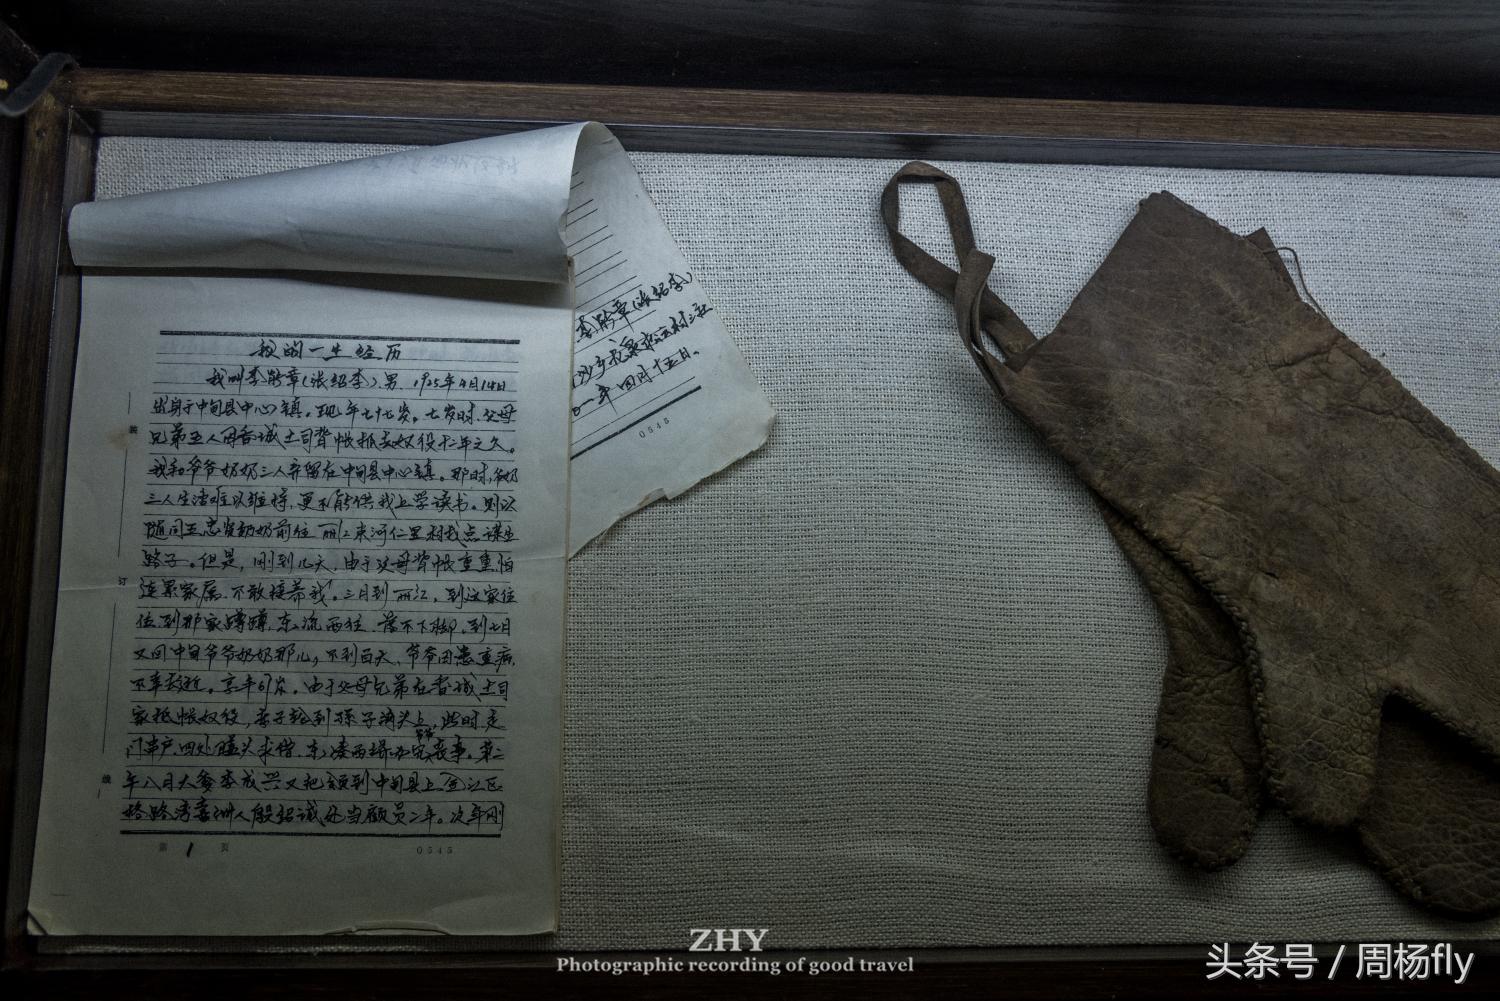 我的一生经历
我叫李龄章(张绍李)、男、1925年4月14日
出身于中甸县中心镇。现年七十七岁。七岁时、父母
兄弟五人因香城土司背帐抵去奴役十二年之久。
我和爷爷奶奶三人弃留在中甸县中心镇。那时,爷奶
三人生活难以维持,更不能供我上学读书。则以
随同 奶奶前往丽江束河仁里村找点谋生
路子。但是,刚到几天,由于父母背帐重重怕
连累家属、不敢接养我。三月到丽江,到这家住
住、到那家蹲蹲、东流西往、落不下脚、到七月
又回中甸爷爷奶奶那儿,不到百天、爷爷因患重病,
不幸去逝。享年61岁。由于父母兄弟在香城土司
家抵帐奴役,孝子轮到孫子满头上、此时,走
门串户、四处磕头求借、东凑西 办完爷爷丧事。第二
年八月大爹李成兴又把 到中甸县上金江区
格路湾 人殷绍诚处当雇员二年。次年刚
装
订
线
第 1 页 0545
李龄章(张绍李)
年四月十五日。
0545
ZHY
Photographic recording of good travel
头条号 / 周杨fly